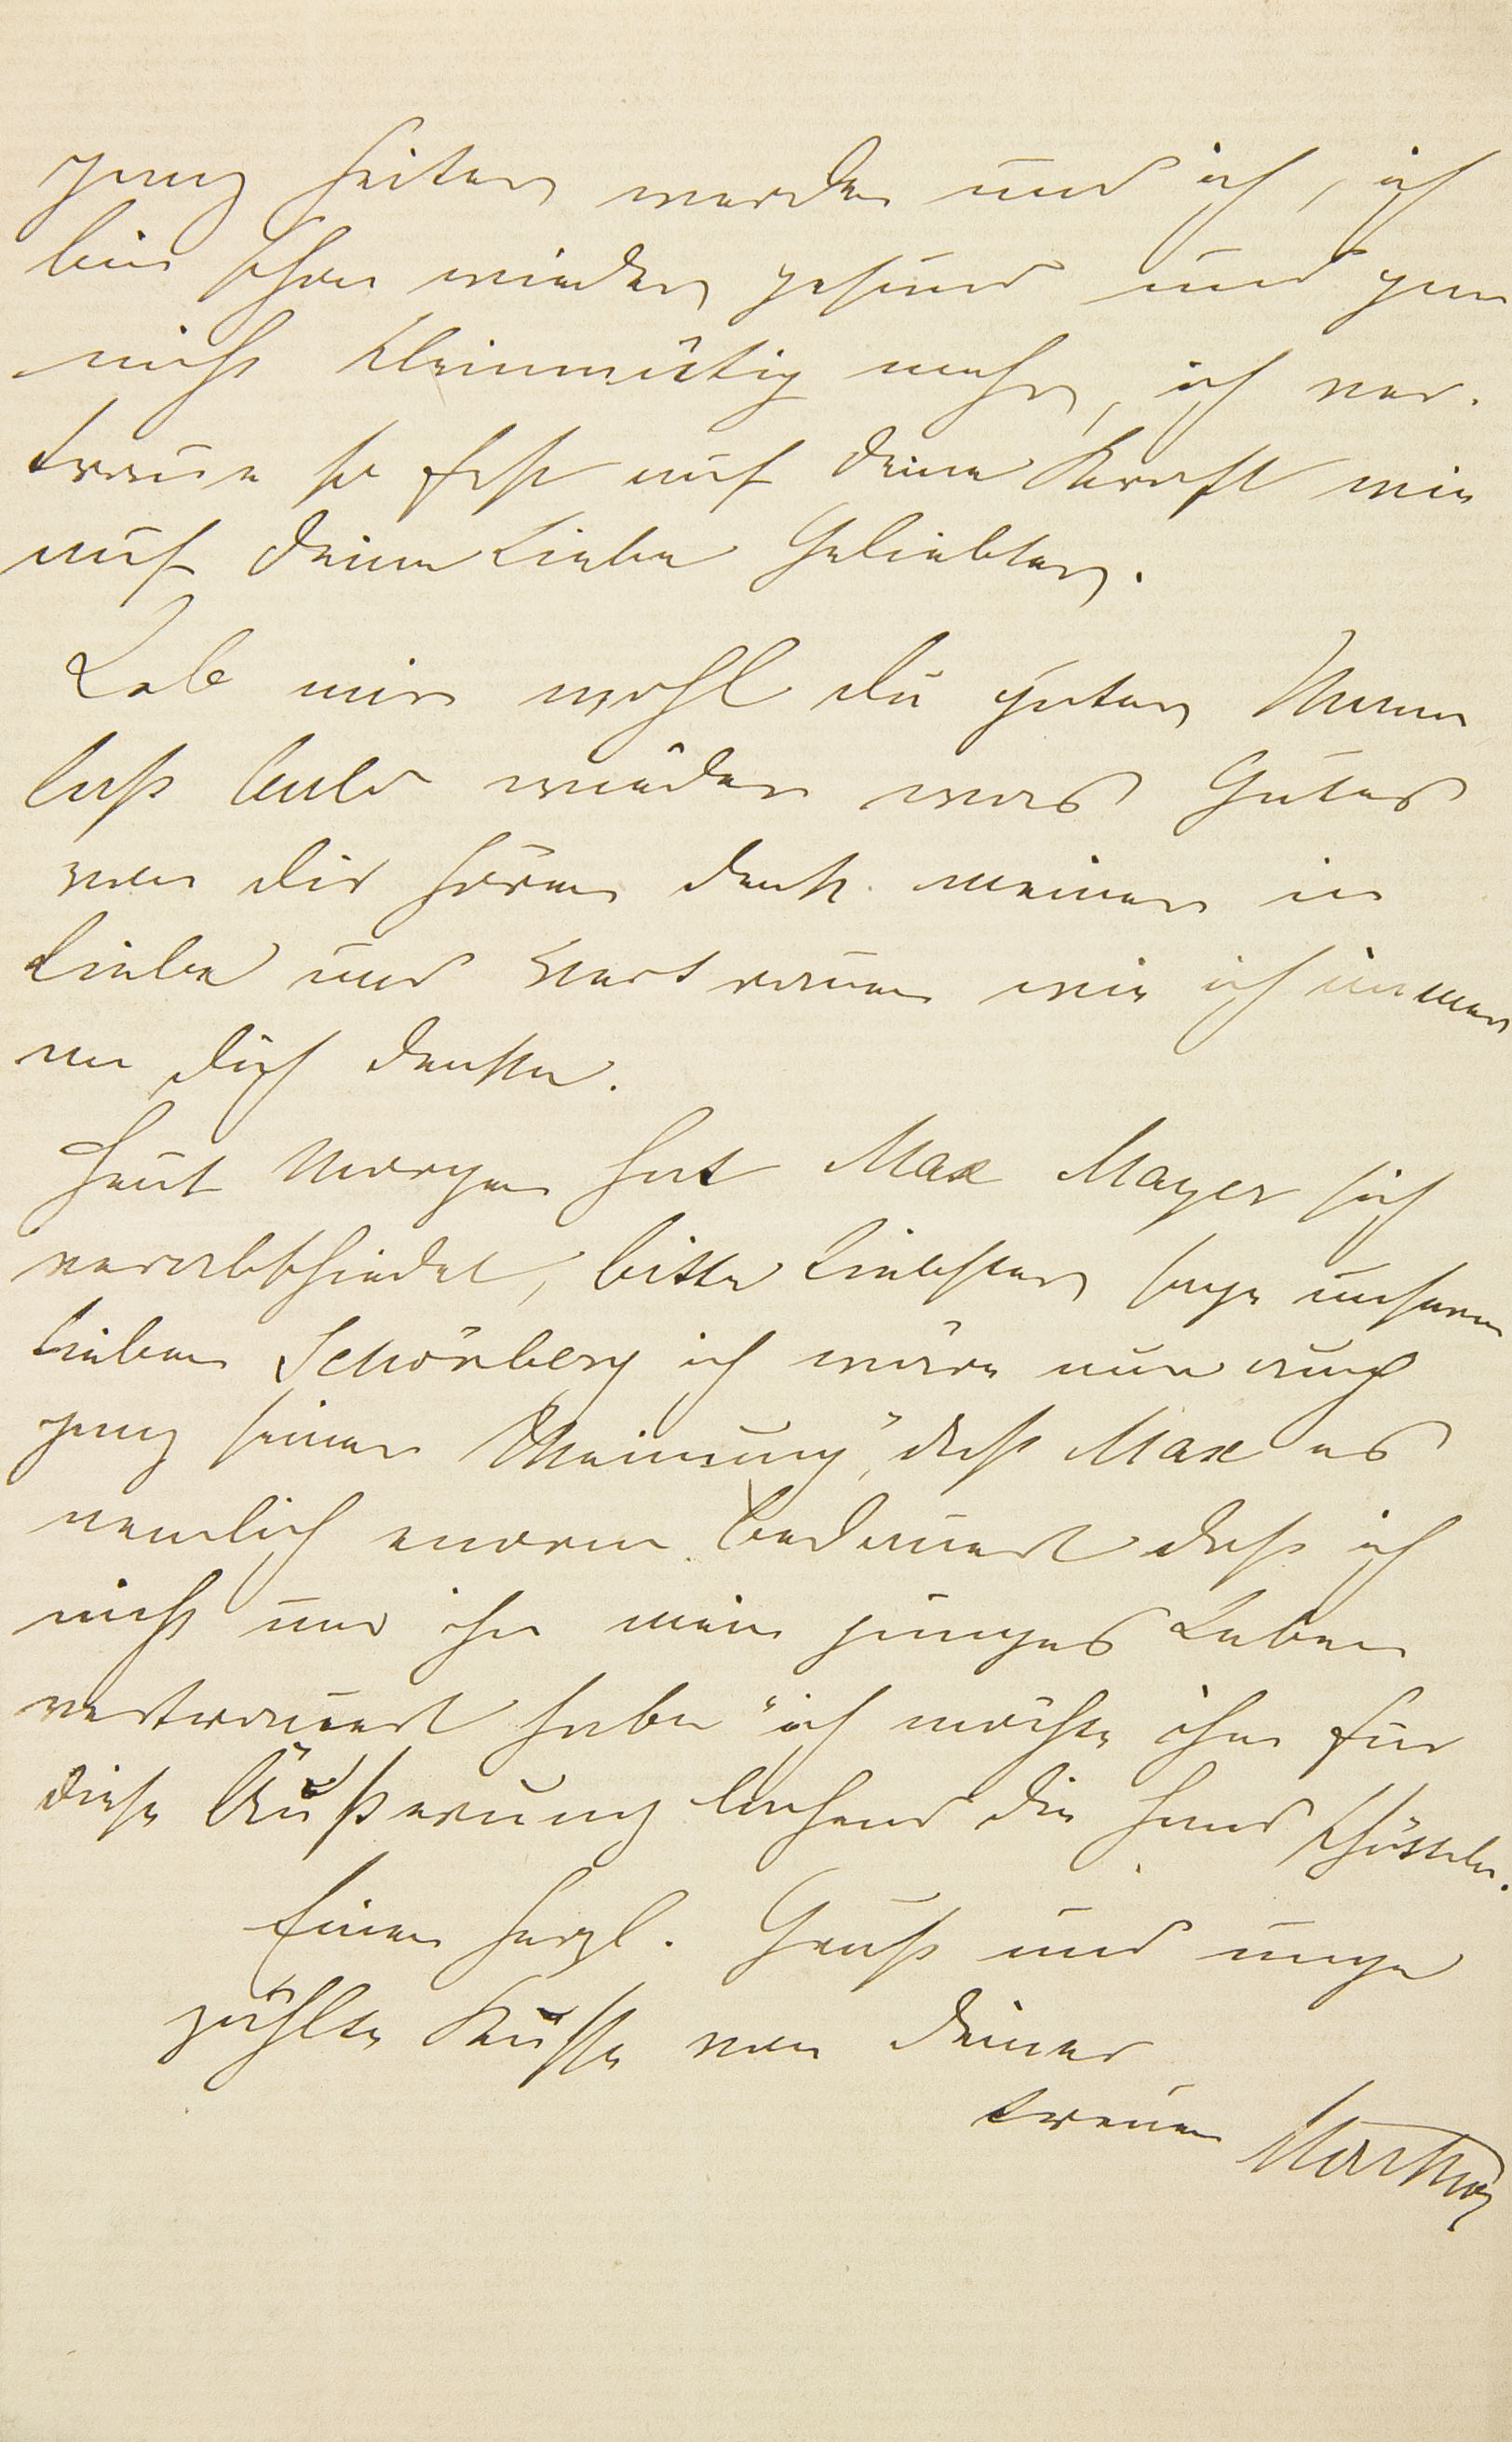 ganz heiter werden und ich, ich
bin schon wieder gesund und gar
nicht kleinmütig mehr, ich ver-
traue so fest auf deine Kraft wie
auf deine Liebe Geliebter.
Leb mir wohl du guter Mann
laß bald wieder was Gutes
von dir hören denk meiner in
Liebe und Vertrauen wie ich immer
an dich denke.
Heut Morgen hat Max Mayer sich
verabschiedet, bitte Liebster sage unserm
lieben Schönberg ich wäre nun auch
ganz seiner Meinung, "daß Max es
nemlich enorm bedauert daß ich
nicht nur ihn mein junges Leben
vertrauert habe" ich möchte ihm für
diese Äußerung lachend die Hand schütteln.
Einen herzl. Gruß und unge
zählte Küsse von deiner
treuen Martha